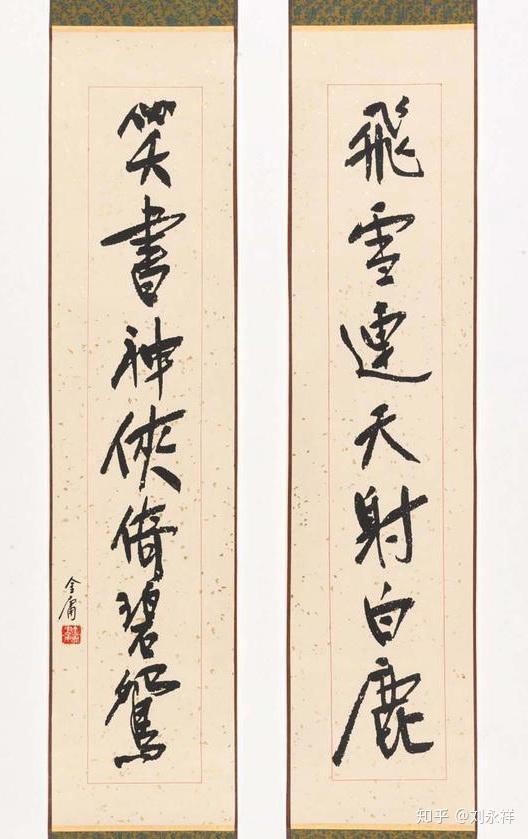 飛雪連天射白鹿
笑書神俠倚碧鴛
金庸
知乎 @刘永祥